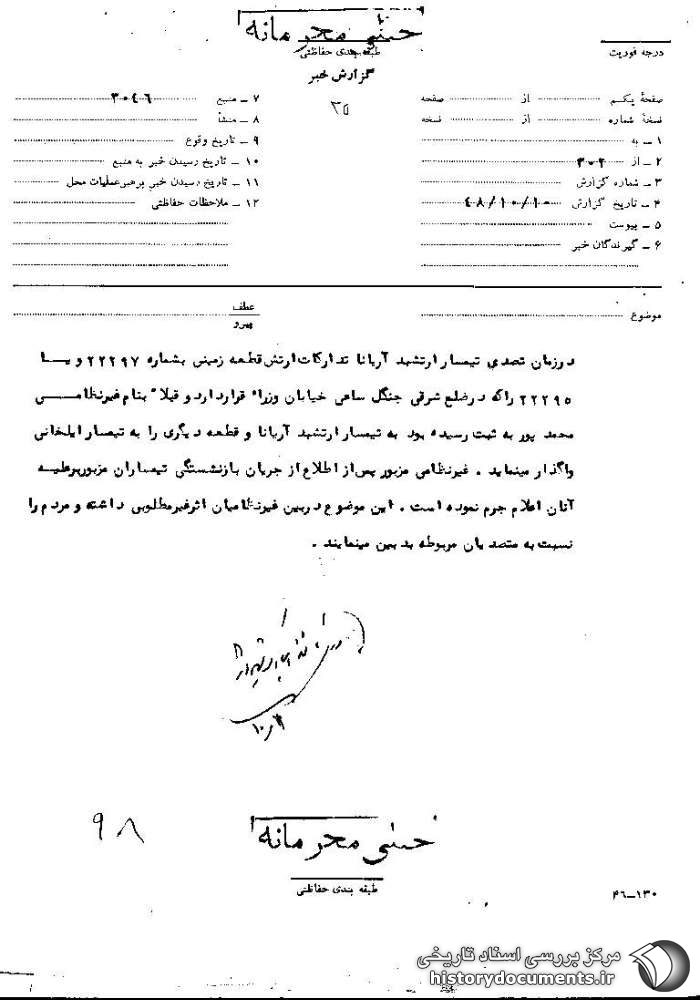 خیلی محرمانه
طبقه بندی حفاظتی
درجه فوریت
گزارش خبر
۳۵
صفحهٔ یکم ـــ از ـــ صفحه
نسخهٔ شماره ـــ از ـــ نسخه
۱ ــ به
۲ ــ از ۳۰۲
۳ ــ شماره گزارش
۴ ــ تاریخ گزارش ۴۸/۱۰/۱۰
۵ ــ پیوست
۶ ــ گیرندگان خبر
۷ ــ منبع ۳۰۴۶
۸ ــ منشأ
۹ ــ تاریخ وقوع
۱۰ ــ تاریخ رسیدن خبر به منبع
۱۱ ــ تاریخ رسیدن خبر برهبر عملیات محل
۱۲ ــ ملاحظات حفاظتی
موضوع
عطف
پیرو
در زمان تصدی تیمسار ارتشبد آریانا تدارکات ارتش قطعه زمینی بشماره ۲۲۲۹۷ و یا
۲۲۲۹۵ را که در ضلع شرقی جنگل ساعی خیابان وزراء قرار دارد و قبلا بنام غیرنظامی
محمد پور به ثبت رسیده بود به تیمسار ارتشبد آریانا و قطعه دیگری را به تیمسار ایلخانی
واگذار مینماید . غیرنظامی مزبور پس از اطلاع از جریان بازنشستگی تیمساران مزبور برعلیه
آنان اعلام جرم نموده است . این موضوع در بین غیرنظامیان اثر غیرمطلوبی داشته و مردم را
نسبت به متصدیان مربوطه بدبین مینمایند .
۹۸
خیلی محرمانه
طبقه بندی حفاظتی
۴۶-۱۳۰
مرکز بررسی اسناد تاریخی
historydocuments.ir